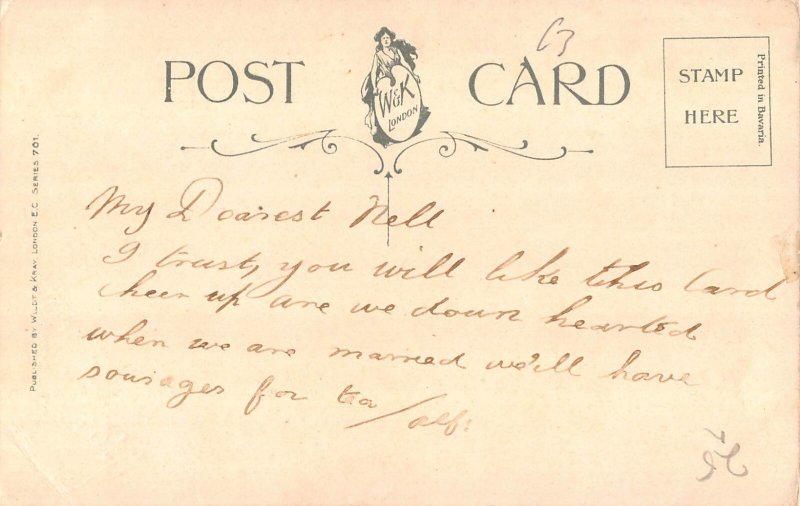 POST CARD
W&K
LONDON
STAMP
HERE
Printed in Bavaria.
PUBLISHED BY WILDT & KRAY, LONDON E.C. SERIES 701.
My Dearest Nell
I trust, you will like this Card
cheer up are we down hearted
when we are married we'll have
sousages for tea / Alf: